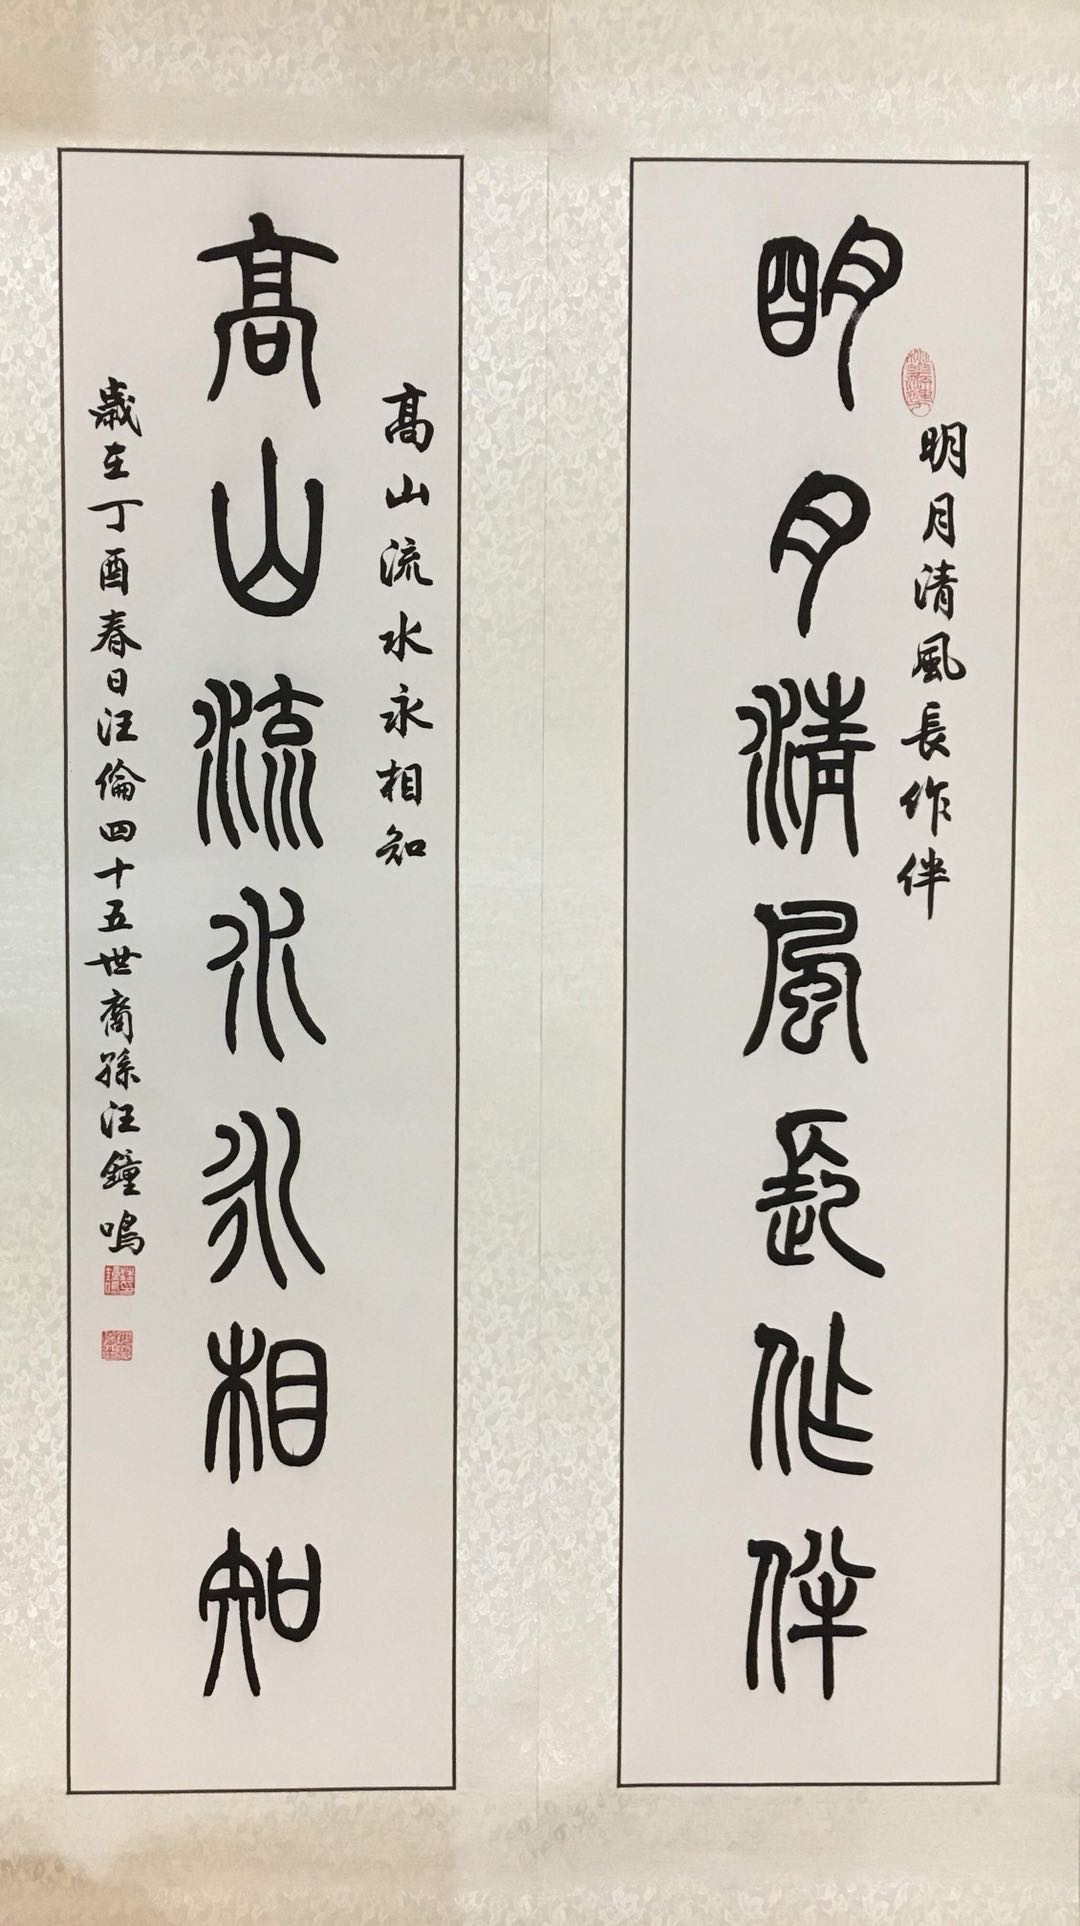 明月清風長作伴
明月清風長作伴
高山流水永相知
高山流水永相知
歲在丁酉春日汪倫四十五世裔孫汪鐘鳴